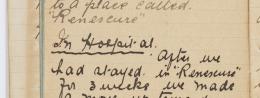 to a place called.
"Renescure"
In Hospital.
After we
had stayed in "Renescure"
for 3 weeks we made